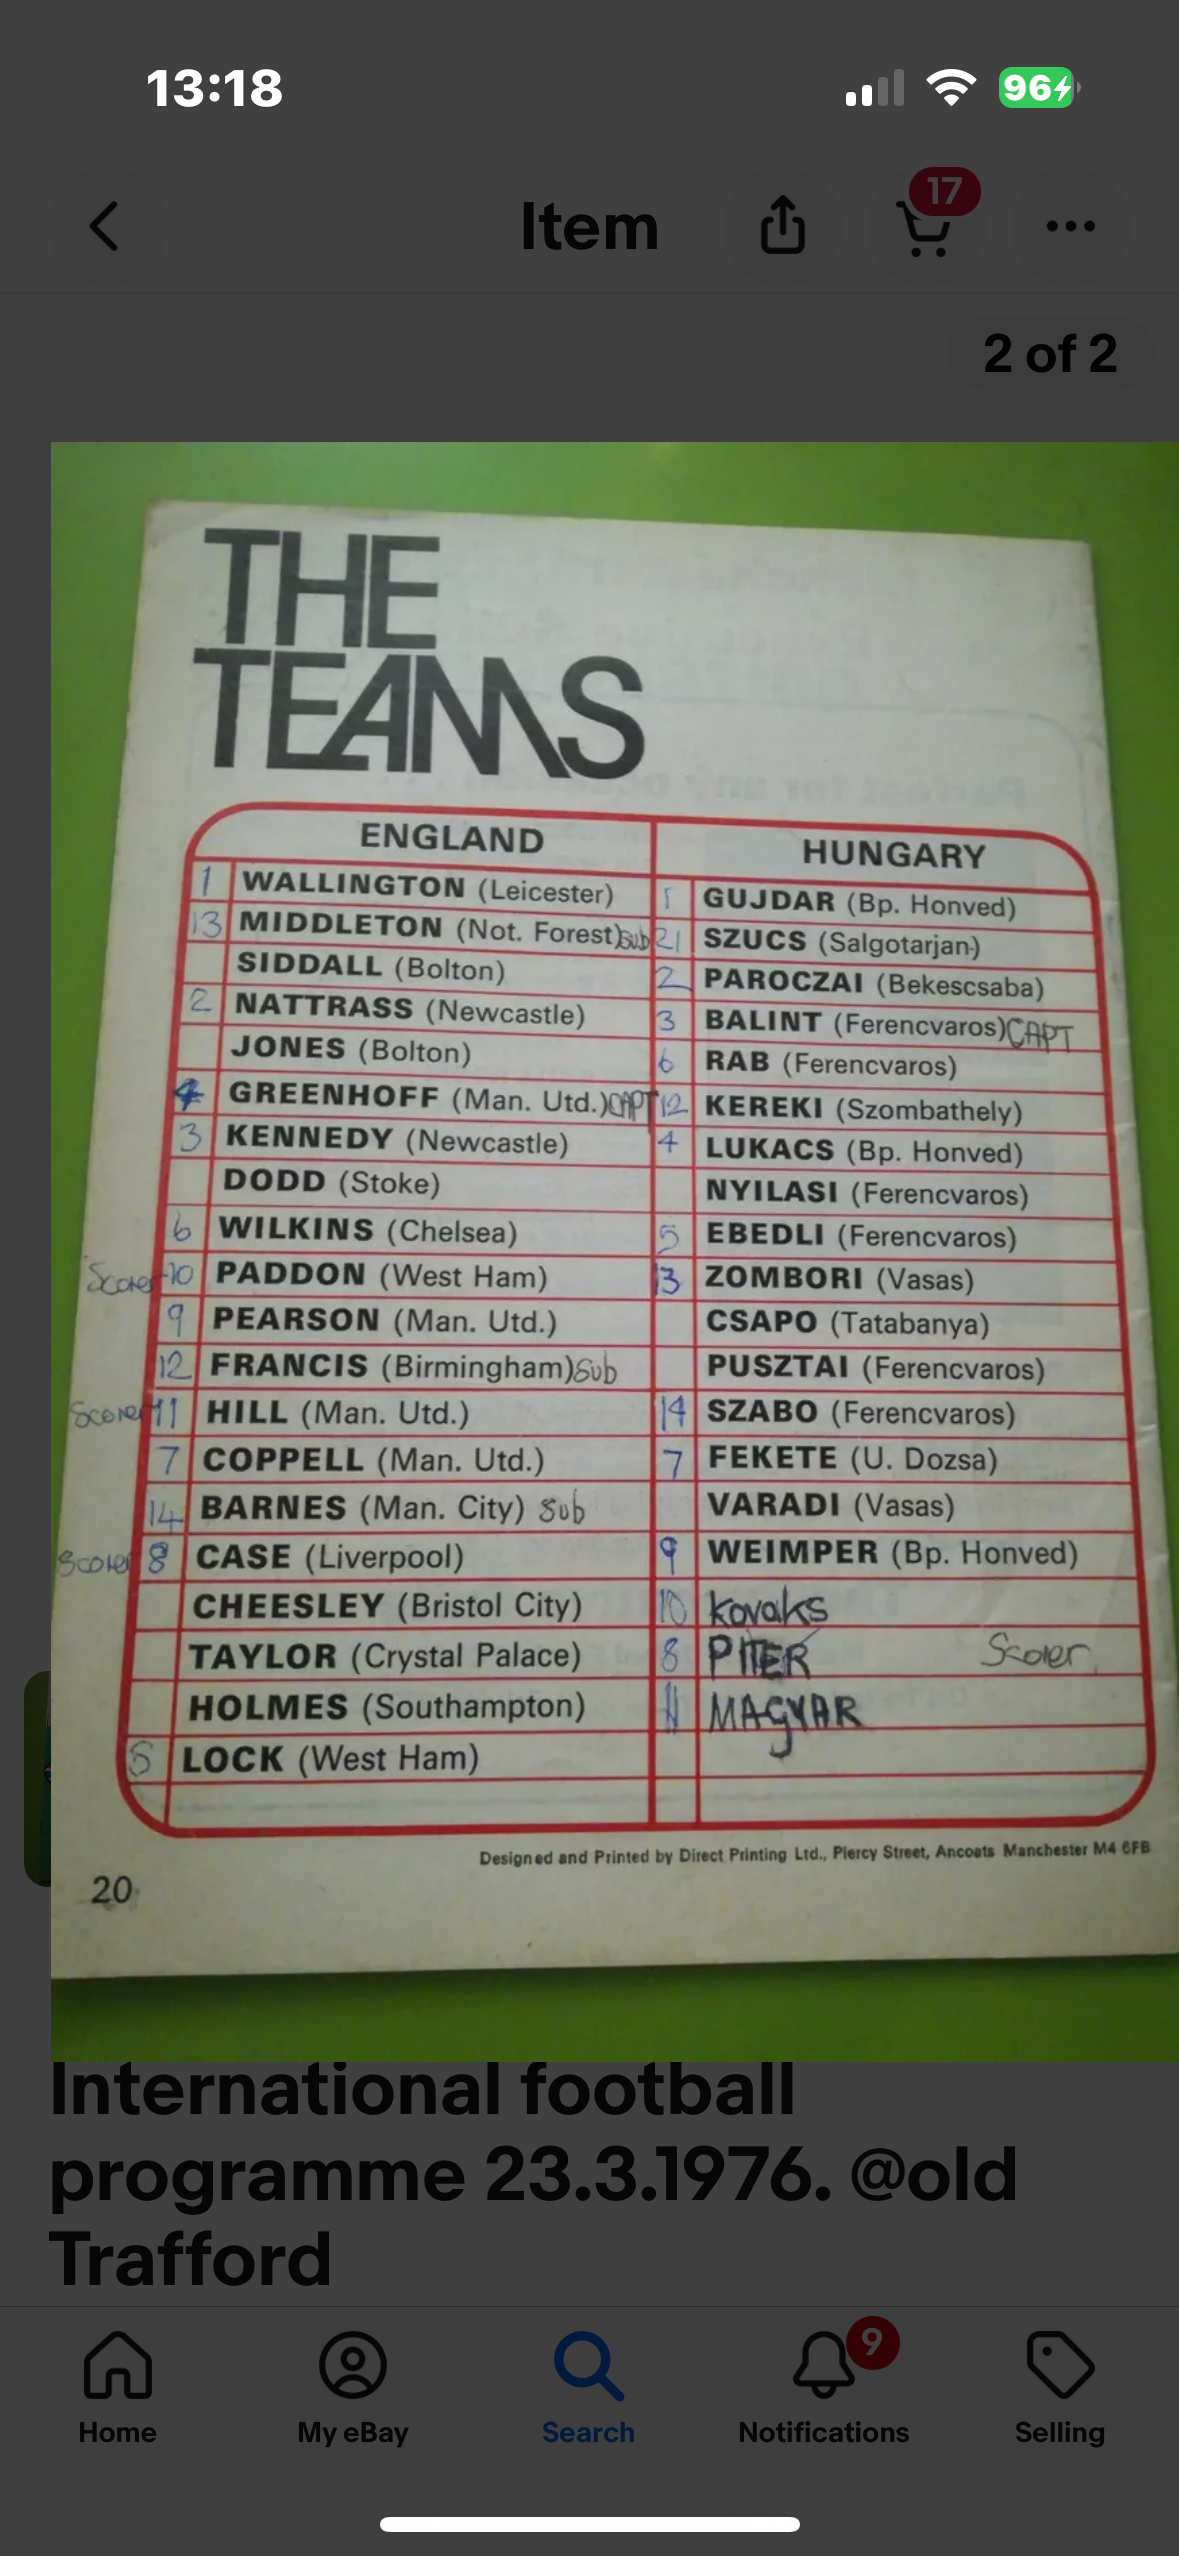 13:18
96
Item
17
2 of 2
THE
TEAMS
ENGLAND HUNGARY
1 WALLINGTON (Leicester) 1 GUJDAR (Bp. Honved)
13 MIDDLETON (Not. Forest) Sub 21 SZUCS (Salgotarjan)
SIDDALL (Bolton) 2 PAROCZAI (Bekescsaba)
2 NATTRASS (Newcastle) 3 BALINT (Ferencvaros) CAPT
JONES (Bolton) 6 RAB (Ferencvaros)
4 GREENHOFF (Man. Utd.) CAPT 12 KEREKI (Szombathely)
3 KENNEDY (Newcastle) 4 LUKACS (Bp. Honved)
DODD (Stoke) NYILASI (Ferencvaros)
6 WILKINS (Chelsea) 5 EBEDLI (Ferencvaros)
Scorer 10 PADDON (West Ham) 13 ZOMBORI (Vasas)
9 PEARSON (Man. Utd.) CSAPO (Tatabanya)
12 FRANCIS (Birmingham) Sub PUSZTAI (Ferencvaros)
Scorer 11 HILL (Man. Utd.) 14 SZABO (Ferencvaros)
7 COPPELL (Man. Utd.) 7 FEKETE (U. Dozsa)
14 BARNES (Man. City) Sub VARADI (Vasas)
Scorer 8 CASE (Liverpool) 9 WEIMPER (Bp. Honved)
CHEESLEY (Bristol City) 10 kovaks
TAYLOR (Crystal Palace) 8 PITER Scorer
HOLMES (Southampton) 11 MAGYAR
5 LOCK (West Ham)
Designed and Printed by Direct Printing Ltd., Piercy Street, Ancoats Manchester M4 6FB
20
International football
programme 23.3.1976. @old
Trafford
9
Home My eBay Search Notifications Selling